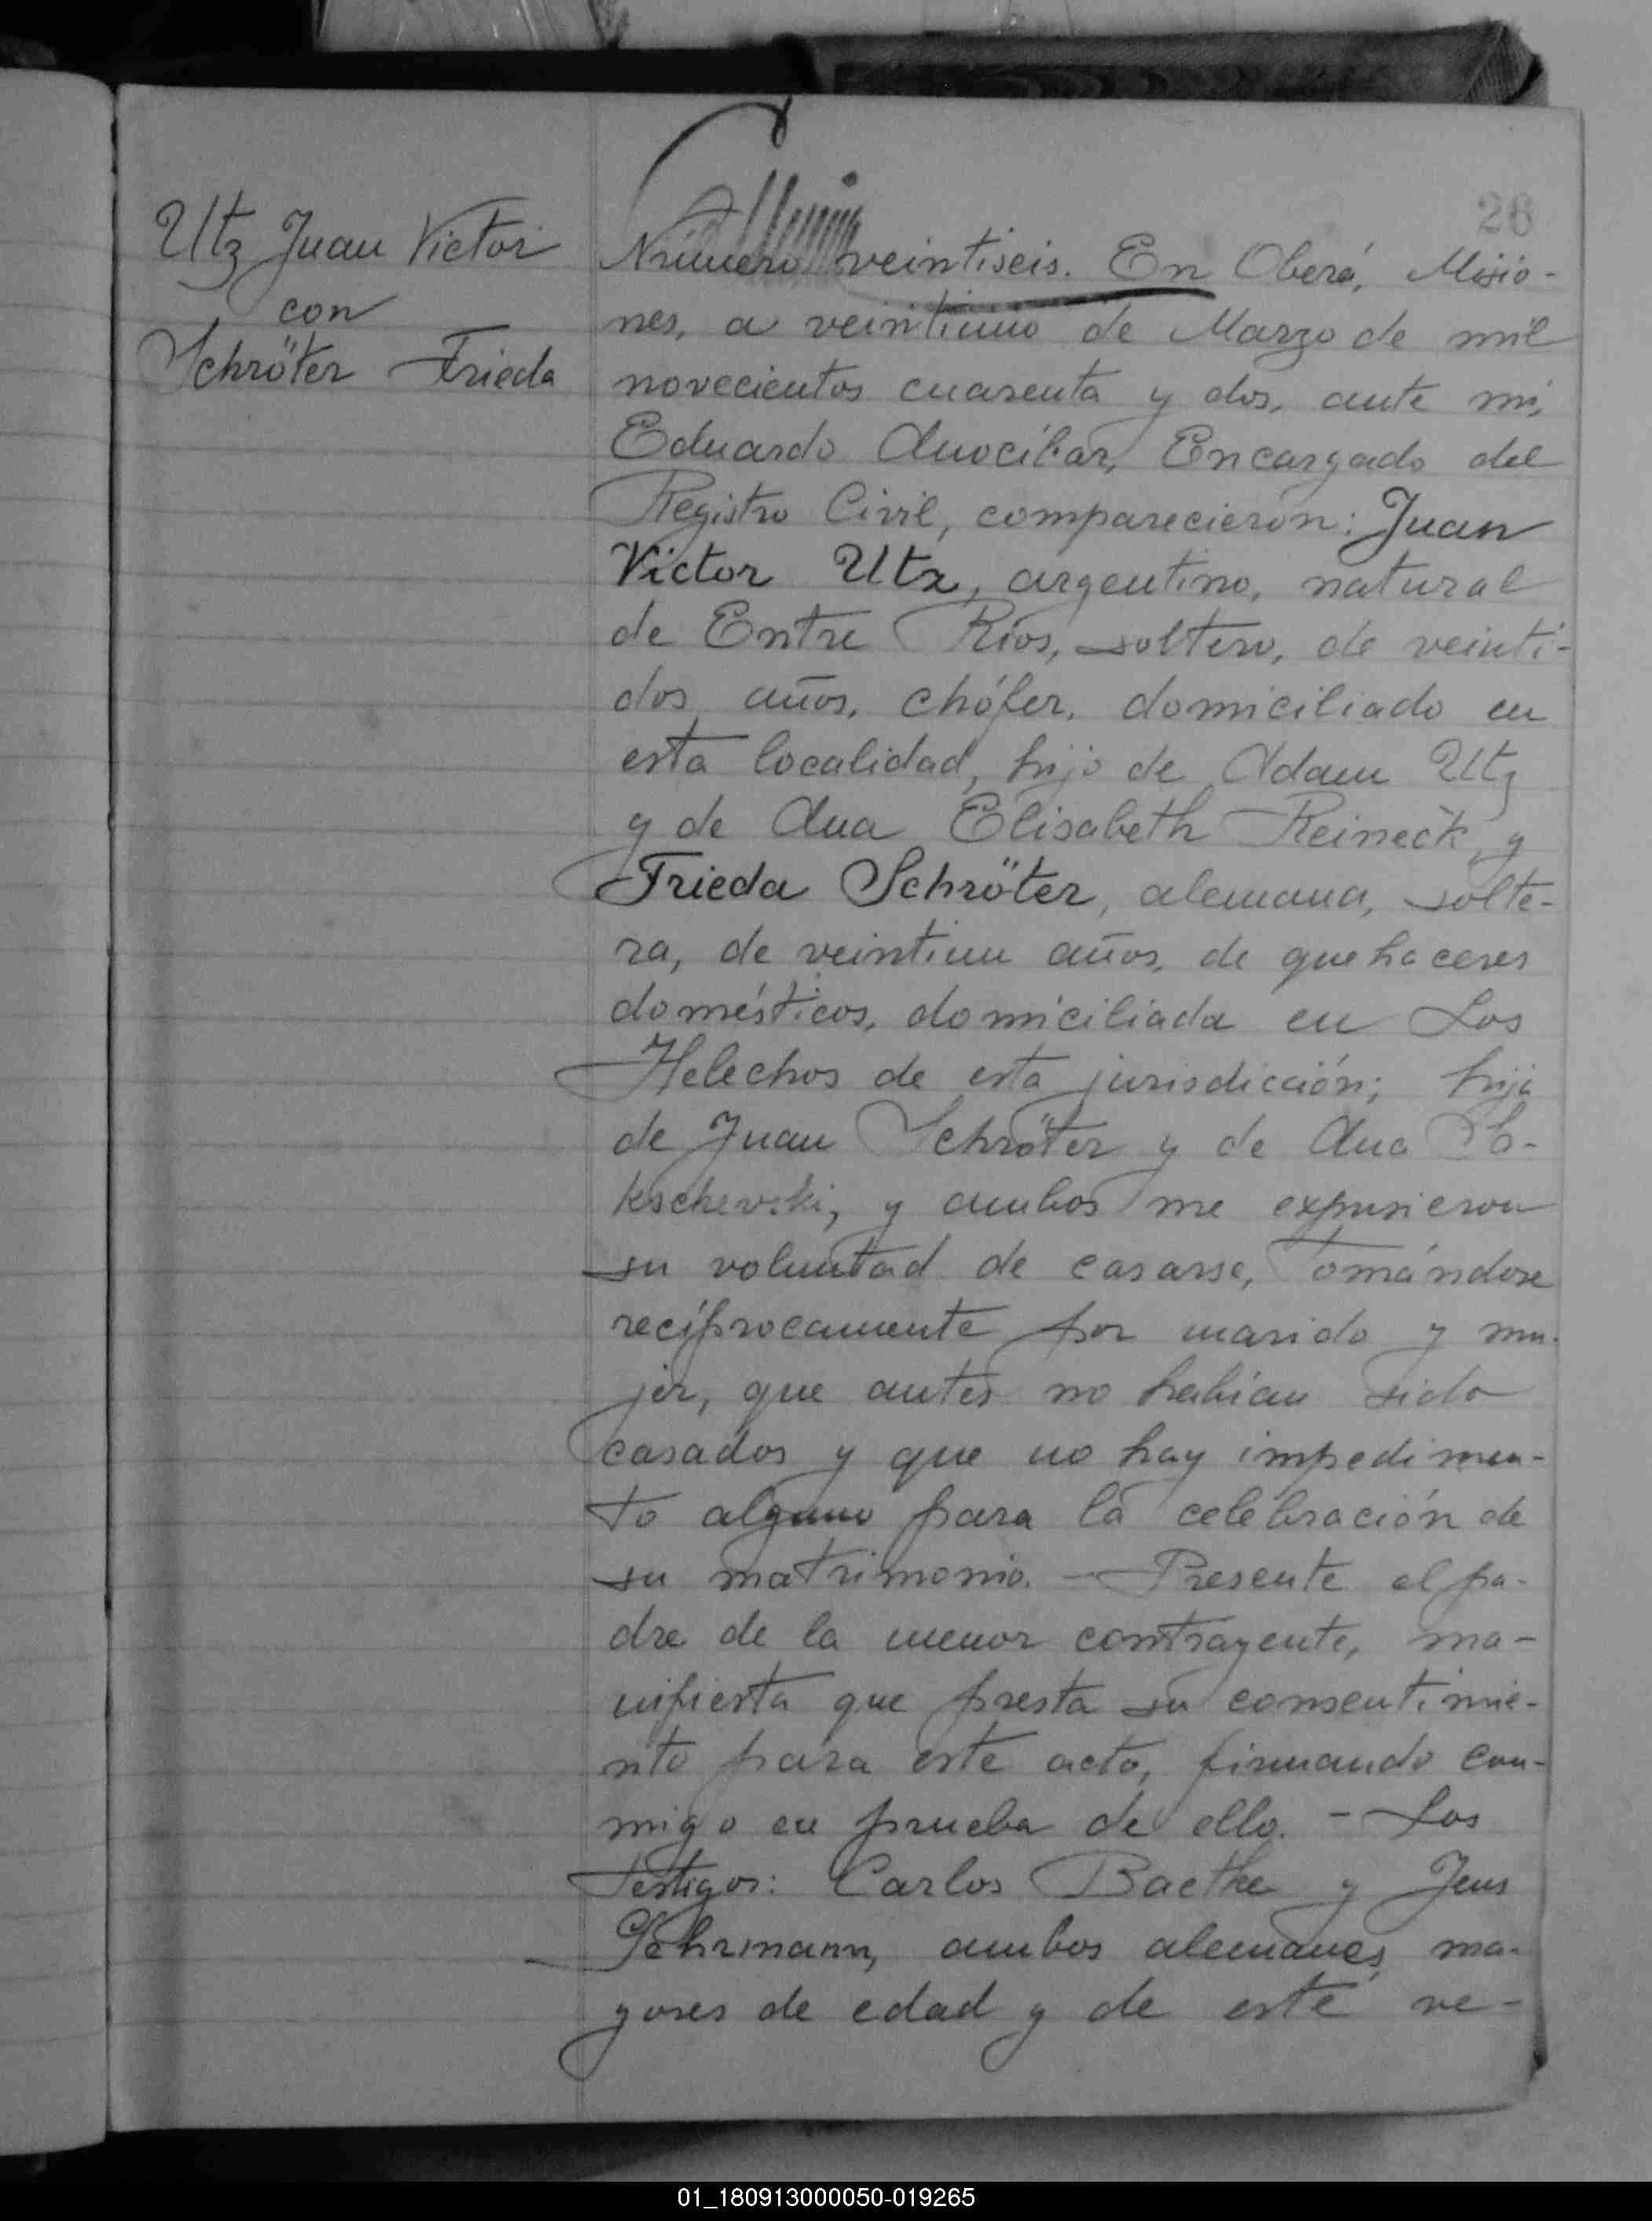 26
Utz Juan Victor
con
Schröter Frieda
Número veintiseis. En Oberá, Misio-
nes, a veintiuno de Marzo de mil
novecientos cuarenta y dos, ante mí,
Eduardo Anocíbar, Encargado del
Registro Civil, comparecieron: Juan
Victor Utz, argentino, natural
de Entre Ríos, soltero, de veinti-
dos años, chófer, domiciliado en
esta localidad, hijo de Adam Utz
y de Ana Elisabeth Reineck, y
Frieda Schröter, alemana, solte-
ra, de veintiun años, de quehaceres
domésticos, domiciliada en Los
Helechos de esta jurisdicción; hija
de Juan Schröter y de Ana
y ambos me expusieron
su voluntad de casarse, tomándose
recíprocamente por marido y mu-
jer, que antes no habían sido
casados y que no hay impedimen-
to alguno para la celebración de
su matrimonio. - Presente el pa-
dre de la menor contrayente, ma-
nifiesta que presta su consentimie-
nto para este acto, firmando con-
migo en prueba de ello. - Los
testigos: Carlos Baethe y Jens
Gehrmann, ambos alemanes, ma-
yores de edad y de este ve-
01_180913000050-019265